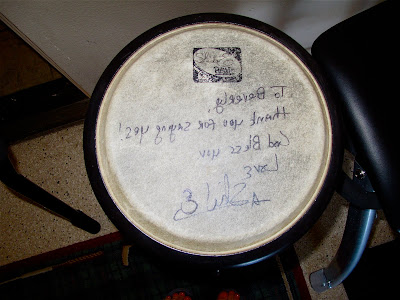 To Beverly,
Thank you for saying yes!
God Bless you
Love